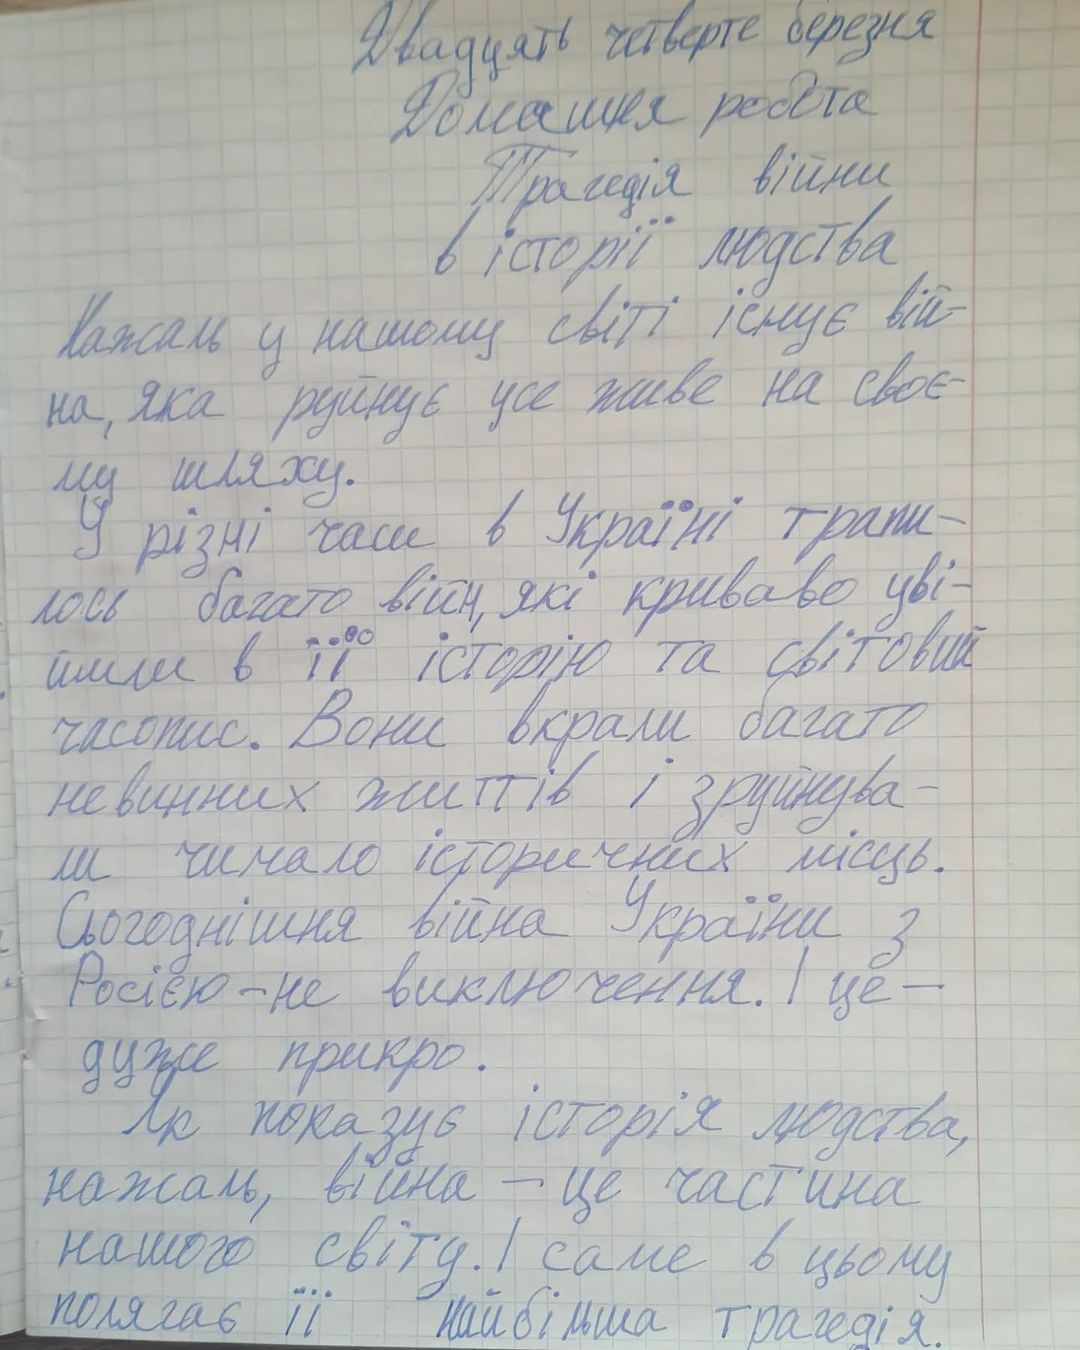 Двадцять четверте березня
Домашня робота
Трагедія війни
в історії людства
Нажаль у нашому світі існує вій-
на, яка руйнує усе живе на своє-
му шляху.
У різні часи в Україні трапи-
лось багато війн, які криваво уві-
йшли в її історію та світовий
часопис. Вони вкрали багато
невинних життів і зруйнува-
ли чимало історичних місць.
Сьогоднішня війна України з
Росією - не виключення. І це -
дуже прикро.
Як показує історія людства,
нажаль, війна - це частина
нашого світу. І саме в цьому
полягає її найбільша трагедія.